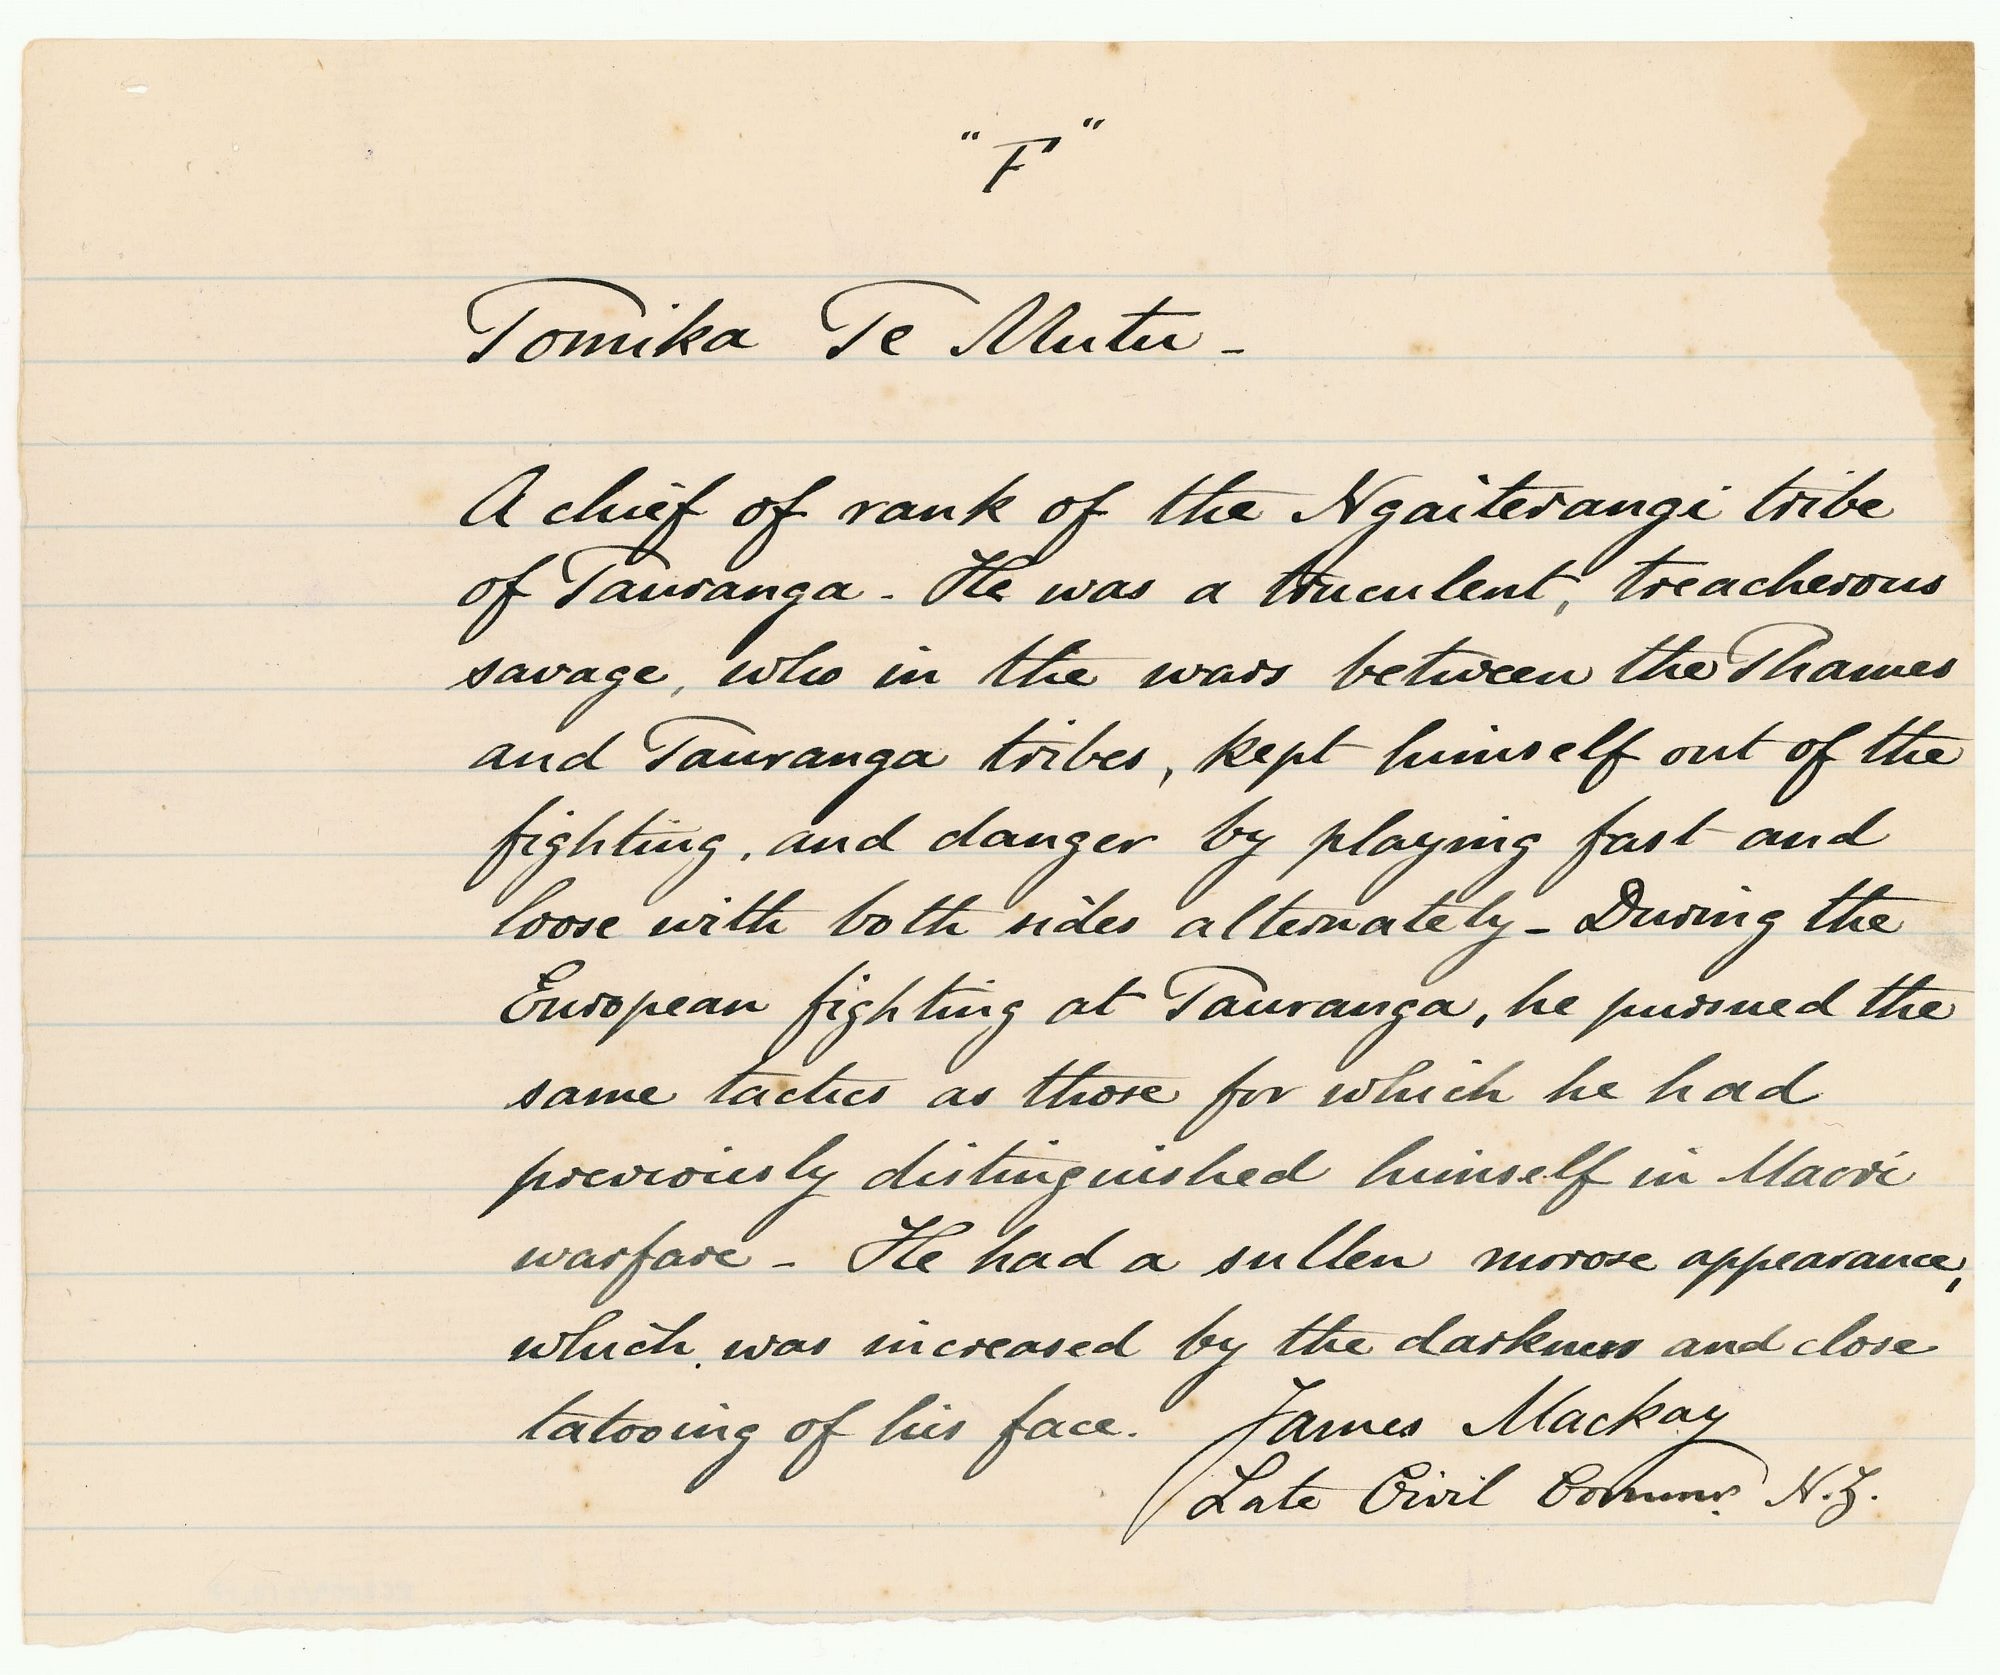 "F"
Tomika Te Mutu -
A chief of rank of the Ngaiterangi tribe
of Tauranga - He was a truculent, treacherous
savage, who in the wars between the Thames
and Tauranga tribes, kept himself out of the
fighting, and danger by playing fast and
loose with both sides alternately - During the
European fighting at Tauranga, he pursued the
same tactics as those for which he had
previously distinguished himself in Maori
warfare - He had a sullen morose appearance,
which was increased by the darkness and close
tatooing of his face. James Mackay
Late Civil Commr. N.Z.